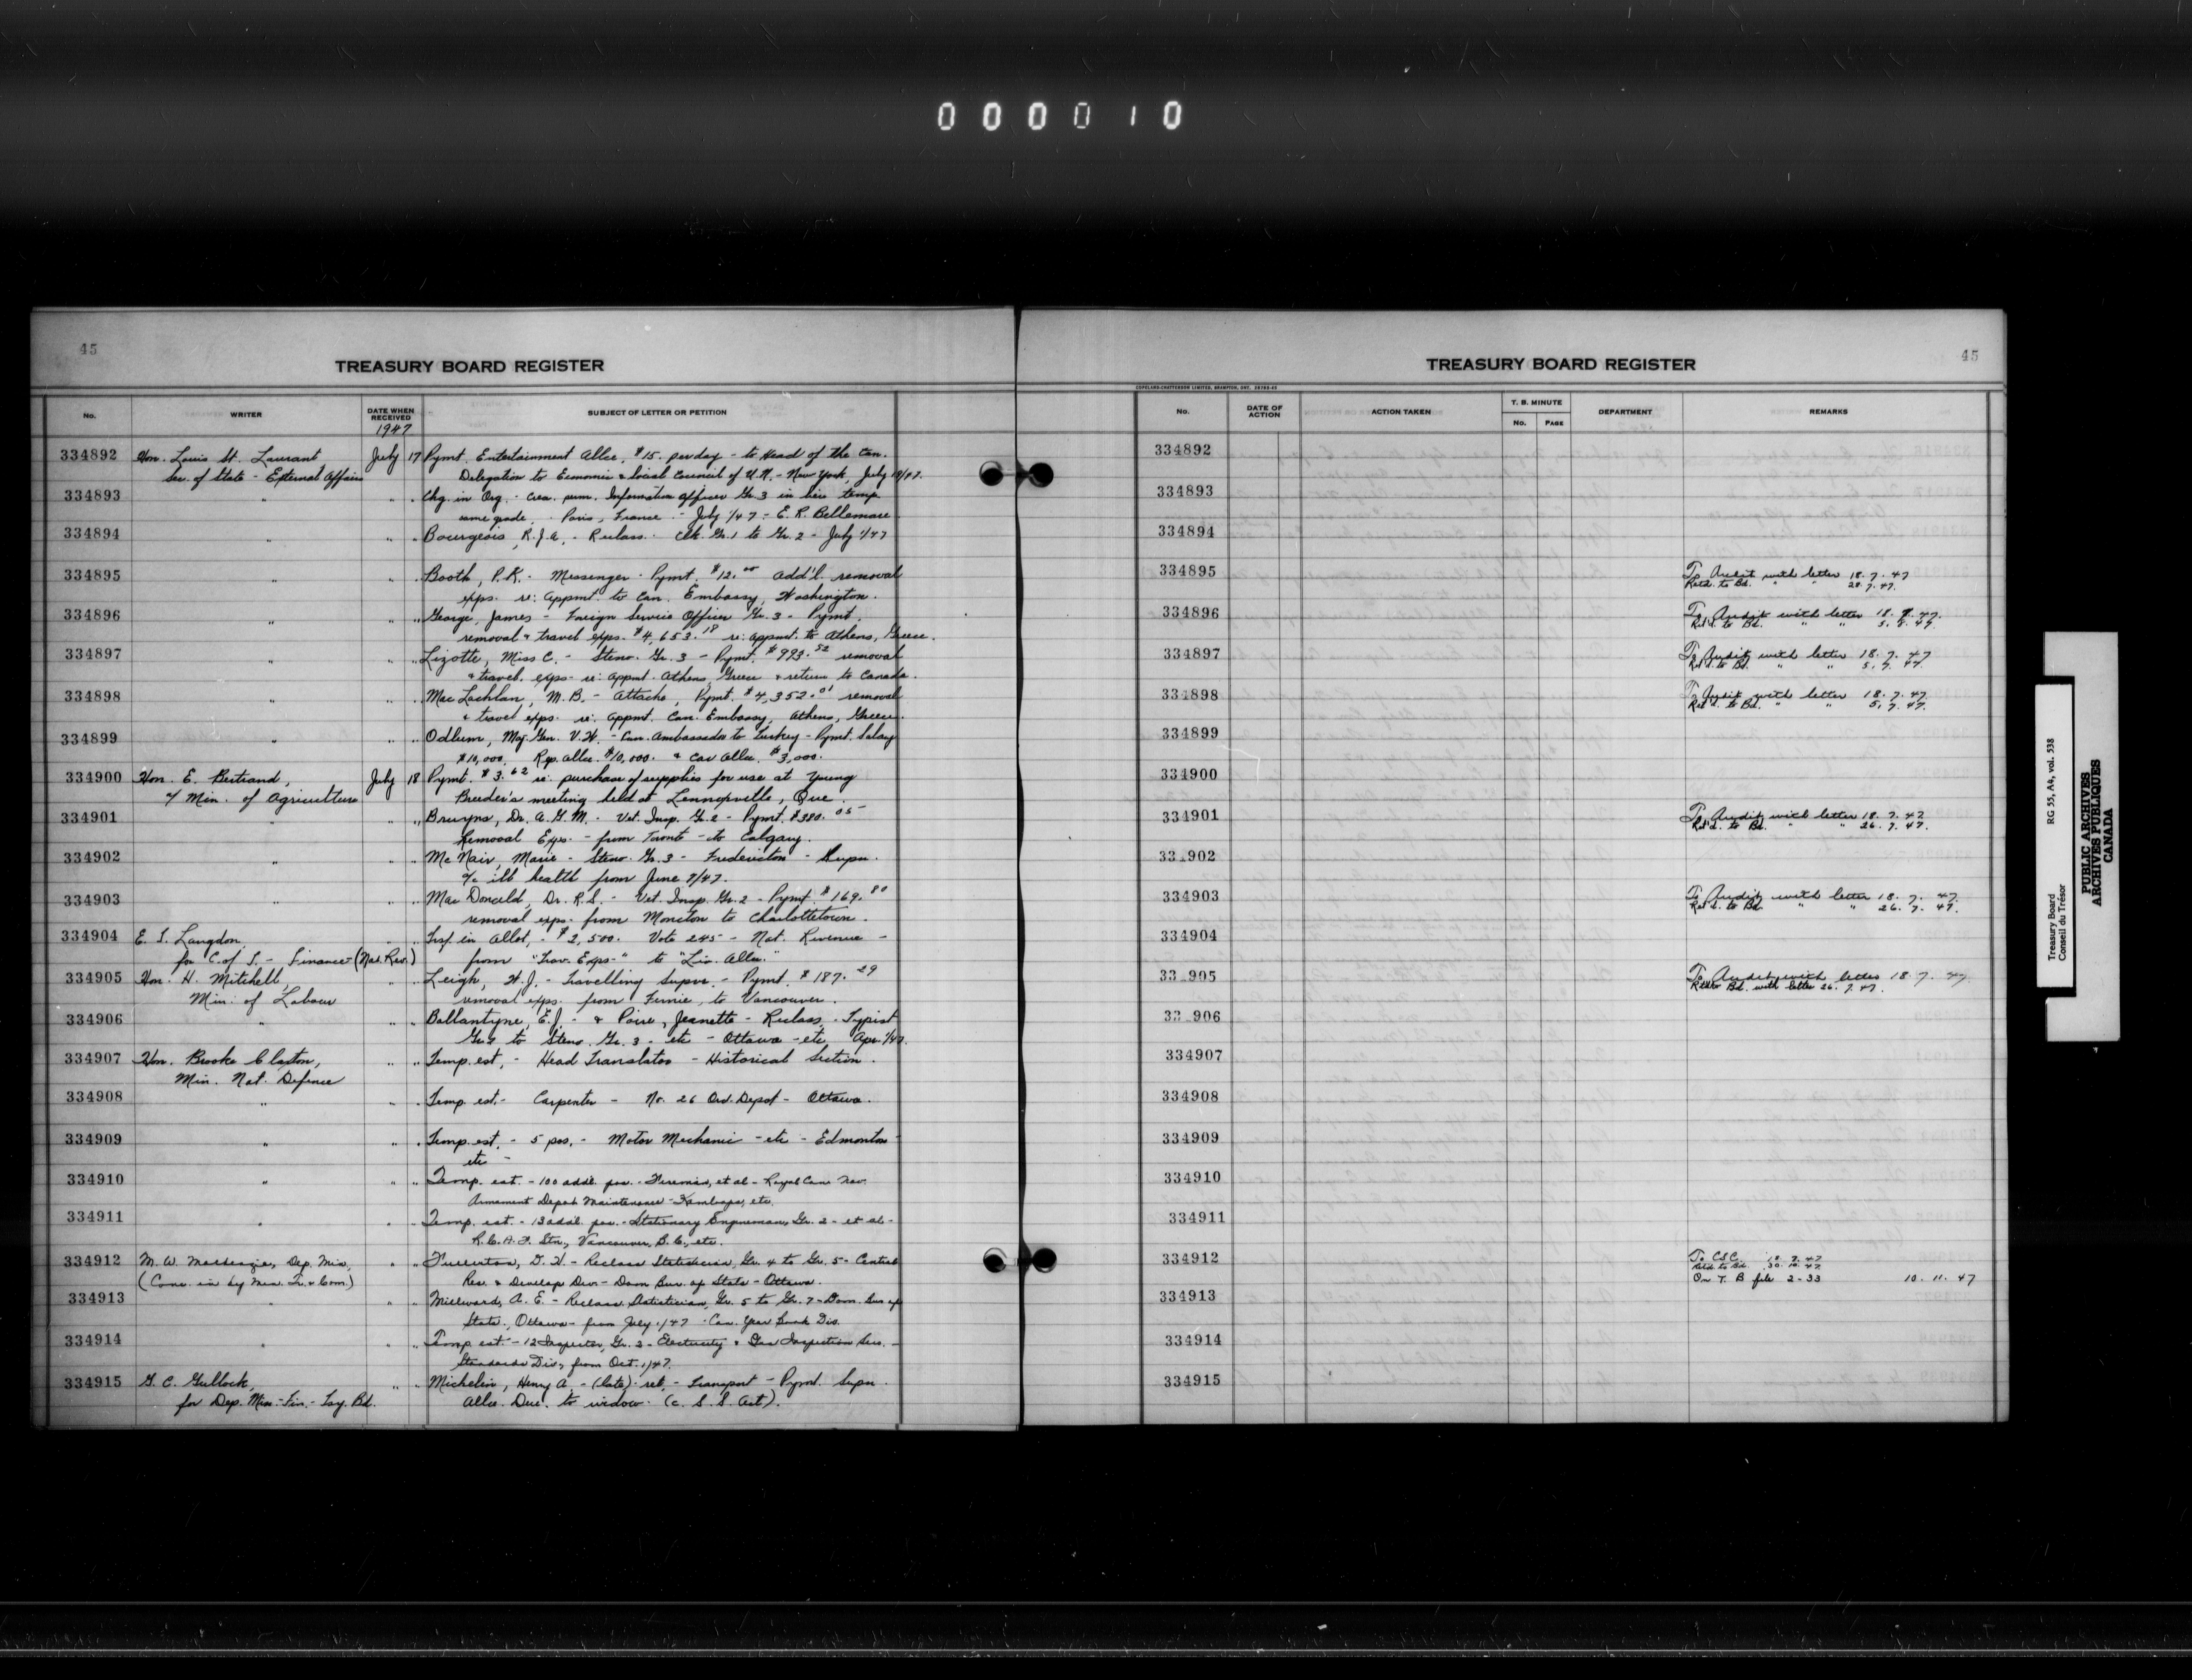 000010
45
TREASURY BOARD REGISTER
No. WRITER DATE WHEN RECEIVED SUBJECT OF LETTER OR PETITION
1947
334892 Hon. Louis St. Laurant July 17 Pymt. Entertainment Allce. $15. per day - to Head of the Can.
Sec. of State - External Affairs Delegation to Economic & Social Council of U.N. - New York, July 19/47.
334893 " " " Chg. in Org. - Crea. perm. Information Officer Gr. 3 in lieu temp.
same grade, - Paris, France - July 1/47 - E. R. Bellemare
334894 " " " Bourgeois, R.J.A. - Reclass. Clk. Gr. 1 to Gr. 2 - July 1/47
334895 " " " Booth, P.K. - Messenger - Pymt. $12.00 add'l. removal
exps. re: Appmt. to Can. Embassy, Washington.
334896 " " " George, James - Foreign Service Officer Gr. 3 - Pymt.
removal & travel exps. $4,653.18 re: appmt. to Athens, Greece.
334897 " " " Lizotte, Miss C. - Steno. Gr. 3 - Pymt. $993.52 removal
& travel. exps. re: appmt. Athens, Greece & return to Canada.
334898 " " " MacLachlan, M.B. - Attache, Pymt. $4,352.01 removal
& travel exps. re: Appmt. Can. Embassy, Athens, Greece.
334899 " " " Odlum, Maj. Gen. V.W. - Can. Ambassador to Turkey - Pymt. Salary
$10,000. Rep. allce. $10,000. & Car Allce. $3,000.
334900 Hon. E. Bertrand, July 18 Pymt. $3.62 re: purchase of supplies for use at Young
Min. of Agriculture Breeder's meeting held at Lennoxville, Que.
334901 " " " Bruyns, Dr. A.G.M. - Vet. Insp. Gr. 2 - Pymt. $380.05
Removal Exps. - from Toronto - to Calgary.
334902 " " " McNair, Marie - Steno. Gr. 3 - Fredericton - Supn.
a/c ill health from June 7/47.
334903 " " " MacDonald, Dr. R.S. - Vet. Insp. Gr. 2 - Pymt. $169.80
removal exps. from Moncton to Charlottetown.
334904 E. S. Langdon, " " Trsf in Allot. - $2,500. Vote 245 - Nat. Revenue -
for C. of T. - Finance (Nat. Rev.) from "Trav. Exps." to "Liv. Allce."
334905 Hon. H. Mitchell, " " Leigh, W.J. - Travelling Supvr. - Pymt. $187.29
Min. of Labour removal exps. from Fernie, to Vancouver.
334906 " " " Ballantyne, E.J. - & Poire, Jeanette - Reclass. - Typist
Gr. 2 to Steno. Gr. 3 - etc - Ottawa - etc. Apr. 1/47.
334907 Hon. Brooke Claxton, " " Temp. est. - Head Translator - Historical Section.
Min. Nat. Defence
334908 " " " Temp. est. - Carpenter - No. 26 Ord. Depot - Ottawa.
334909 " " " Temp. est. - 5 pos. - Motor Mechanic - etc - Edmonton
etc -
334910 " " " Temp. est. - 100 addl. pos. - Firemen, et al - Royal Can. Nav.
Armament Depot Maintenance - Kamloops, etc.
334911 " " " Temp. est. - 13 addl. pos. - Stationary Engineman, Gr. 2 - et al -
R.C.A.F. Stn., Vancouver, B.C., etc.
334912 M. W. Mackenzie, Dep. Min., " " Fullerton, D.H. - Reclass Statistician, Gr. 4 to Gr. 5 - Central
(Conc. in by Min. Tr. & Com.) Res. & Develop Div. - Dom Bur. of Stats - Ottawa.
334913 " " " Millward, A.E. - Reclass. Statistician, Gr. 5 to Gr. 7 - Dom. Bur of
Stats., Ottawa - from July 1/47 - Can. Year Book Div.
334914 " " " Temp. est. - 12 Inspector, Gr. 2 - Electricity & Gas Inspection Serv. -
Standards Div., from Oct. 1/47.
334915 G. C. Gullock, " " Michelin, Henry A. - (late) - ret. - Transport - Pymt. Supn.
for Dep. Min. - Fin. - Tsy. Bd. Allce. Due. to widow. (C. S. S. Act).
TREASURY BOARD REGISTER
45
COPELAND-CHATTERSON LIMITED, BRAMPTON, ONT.
No. DATE OF ACTION ACTION TAKEN T. B. MINUTE No. PAGE DEPARTMENT REMARKS
334892
334893
334894
334895 To Audit with letter 18.7.47
Retd. to Bd. " 28.7.47.
334896 To Audit with letter 18.7.47.
Ret'd. to Bd. " " 5.8.47.
334897 To Audit with letter 18.7.47
Ret'd. to Bd. " " 5.7.47.
334898 To Audit with letter 18.7.47.
Ret'd. to Bd. " " 5.7.47.
334899
334900
334901 To Audit with letter 18.7.47
Ret'd. to Bd. " " 26.7.47.
33 902
334903 To Audit with letter 18.7.47.
Ret'd. to Bd. " " 26.7.47.
334904
33 905 To Audit with letter 18.7.47
Bd. with letter 26.7.47.
33 906
334907
334908
334909
334910
334911
334912 To CSC. 18.7.47
Retd. to Bd. 30.10.47
On T. B file 2-33 10.11.47
334913
334914
334915
Treasury Board RG 55, A4, vol. 538
Conseil du Trésor
PUBLIC ARCHIVES
ARCHIVES PUBLIQUES
CANADA